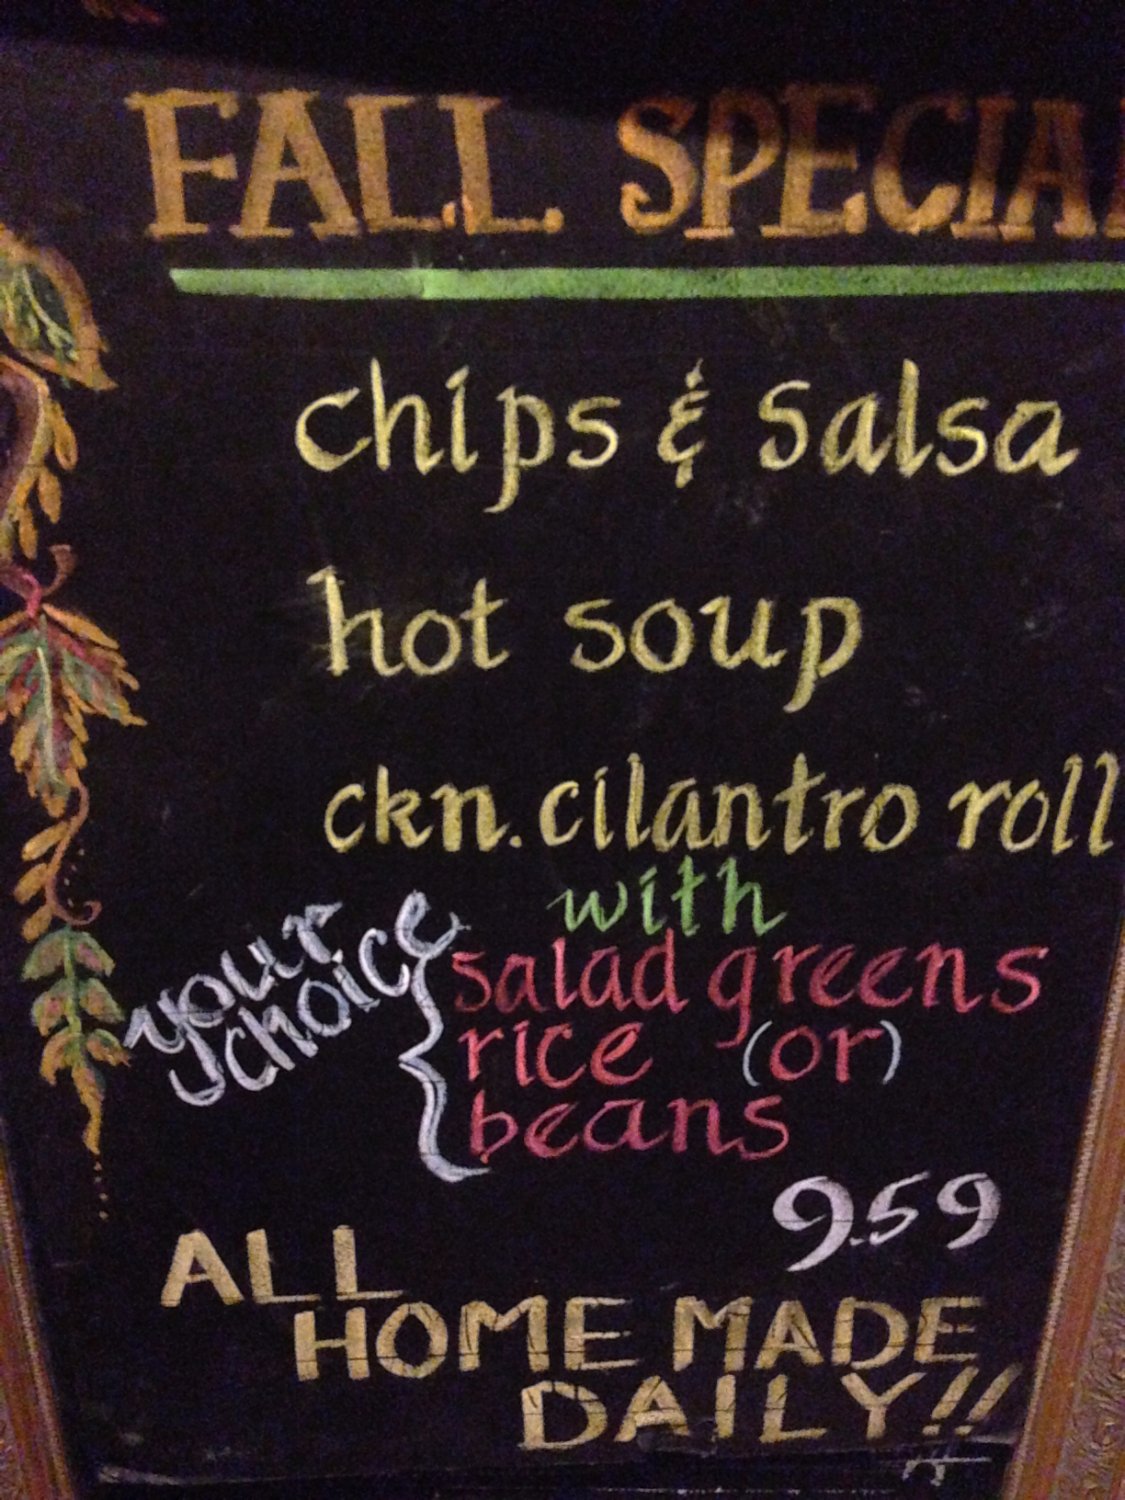 FALL SPECIA
chips & salsa
hot soup
ckn. cilantro roll
with
your choice
salad greens
rice (or)
beans
9.59
ALL
HOME MADE
DAILY!!